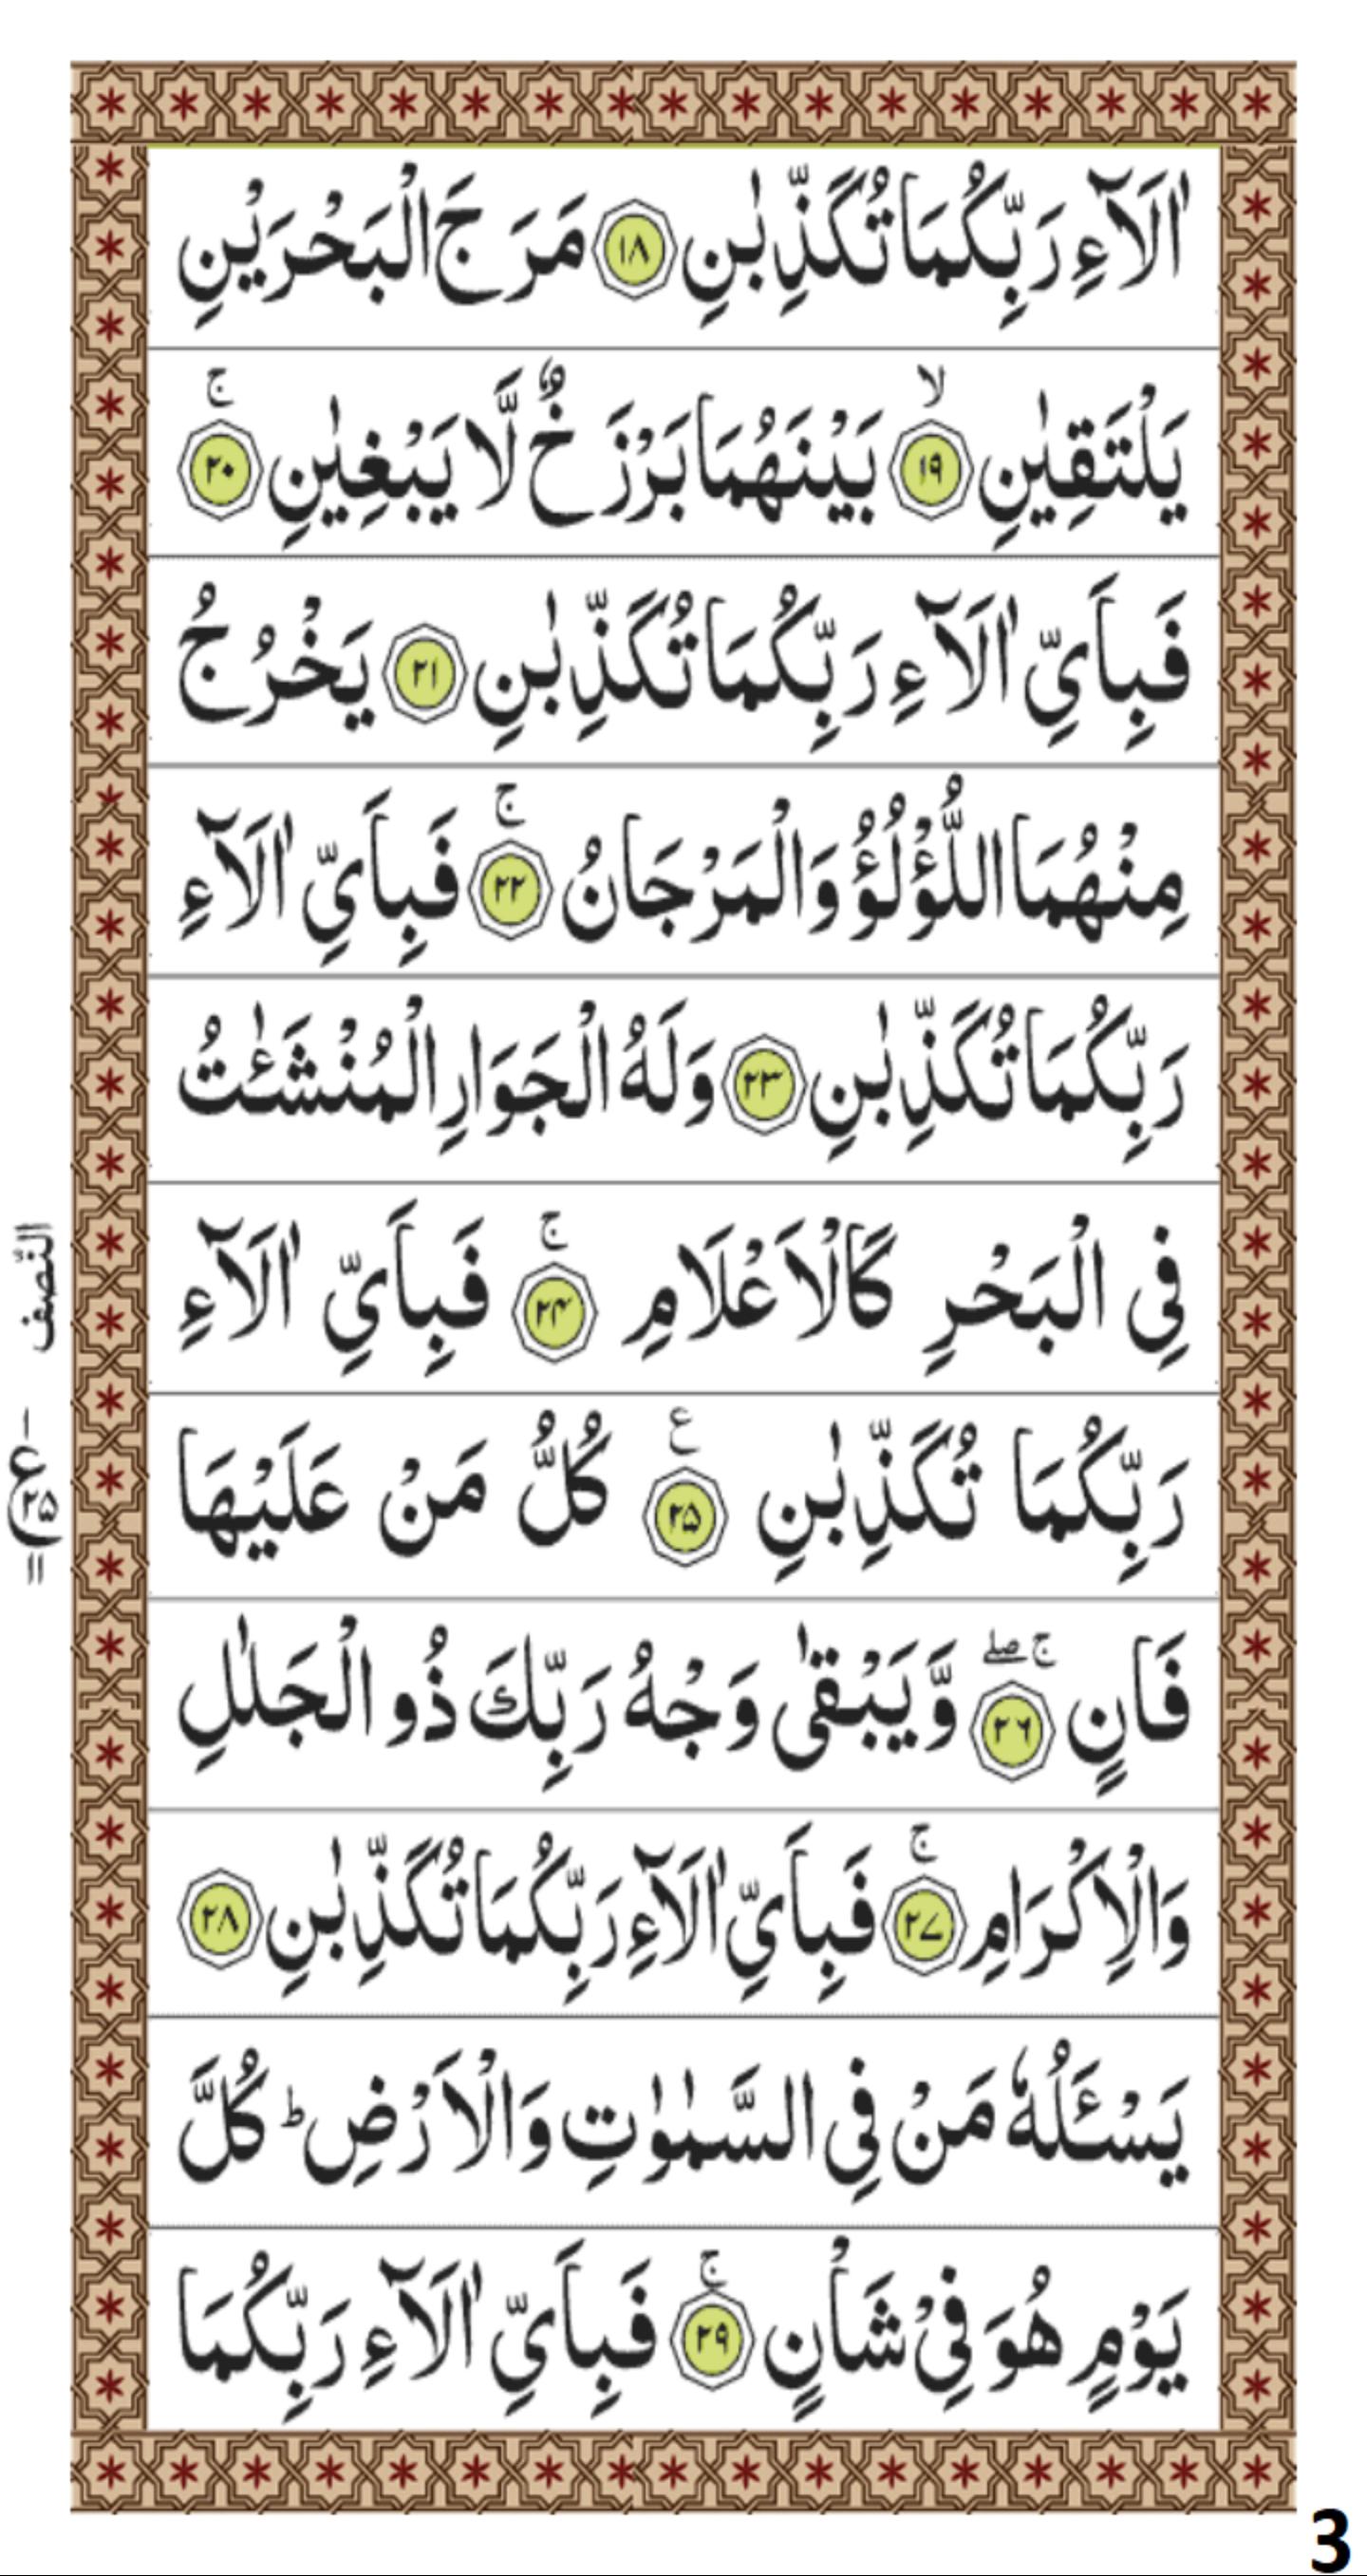 اٰلَآءِ رَبِّكُمَا تُكَذِّبٰنِ ۱۸ مَرَجَ الْبَحْرَيْنِ
يَلْتَقِيٰنِ ۱۹ لا بَيْنَهُمَا بَرْزَخٌ لَّا يَبْغِيٰنِ ۲۰ ج
فَبِاَيِّ اٰلَآءِ رَبِّكُمَا تُكَذِّبٰنِ ۲۱ يَخْرُجُ
مِنْهُمَا اللُّؤْلُؤُ وَالْمَرْجَانُ ۲۲ ج فَبِاَيِّ اٰلَآءِ
رَبِّكُمَا تُكَذِّبٰنِ ۲۳ وَلَهُ الْجَوَارِ الْمُنْشَئٰتُ
فِى الْبَحْرِ كَالْاَعْلَامِ ۲۴ ج فَبِاَيِّ اٰلَآءِ
رَبِّكُمَا تُكَذِّبٰنِ ۲۵ ع كُلُّ مَنْ عَلَيْهَا
فَانٍ ۲۶ ج صلے وَّيَبْقٰى وَجْهُ رَبِّكَ ذُو الْجَلٰلِ
وَالْاِكْرَامِ ۲۷ ج فَبِاَيِّ اٰلَآءِ رَبِّكُمَا تُكَذِّبٰنِ ۲۸
يَسْـَٔلُهٗ مَنْ فِى السَّمٰوٰتِ وَالْاَرْضِ ؕ كُلَّ
يَوْمٍ هُوَ فِيْ شَاْنٍ ۲۹ ج فَبِاَيِّ اٰلَآءِ رَبِّكُمَا
النّصف
۱ ع ۲۵ ۱۱
3